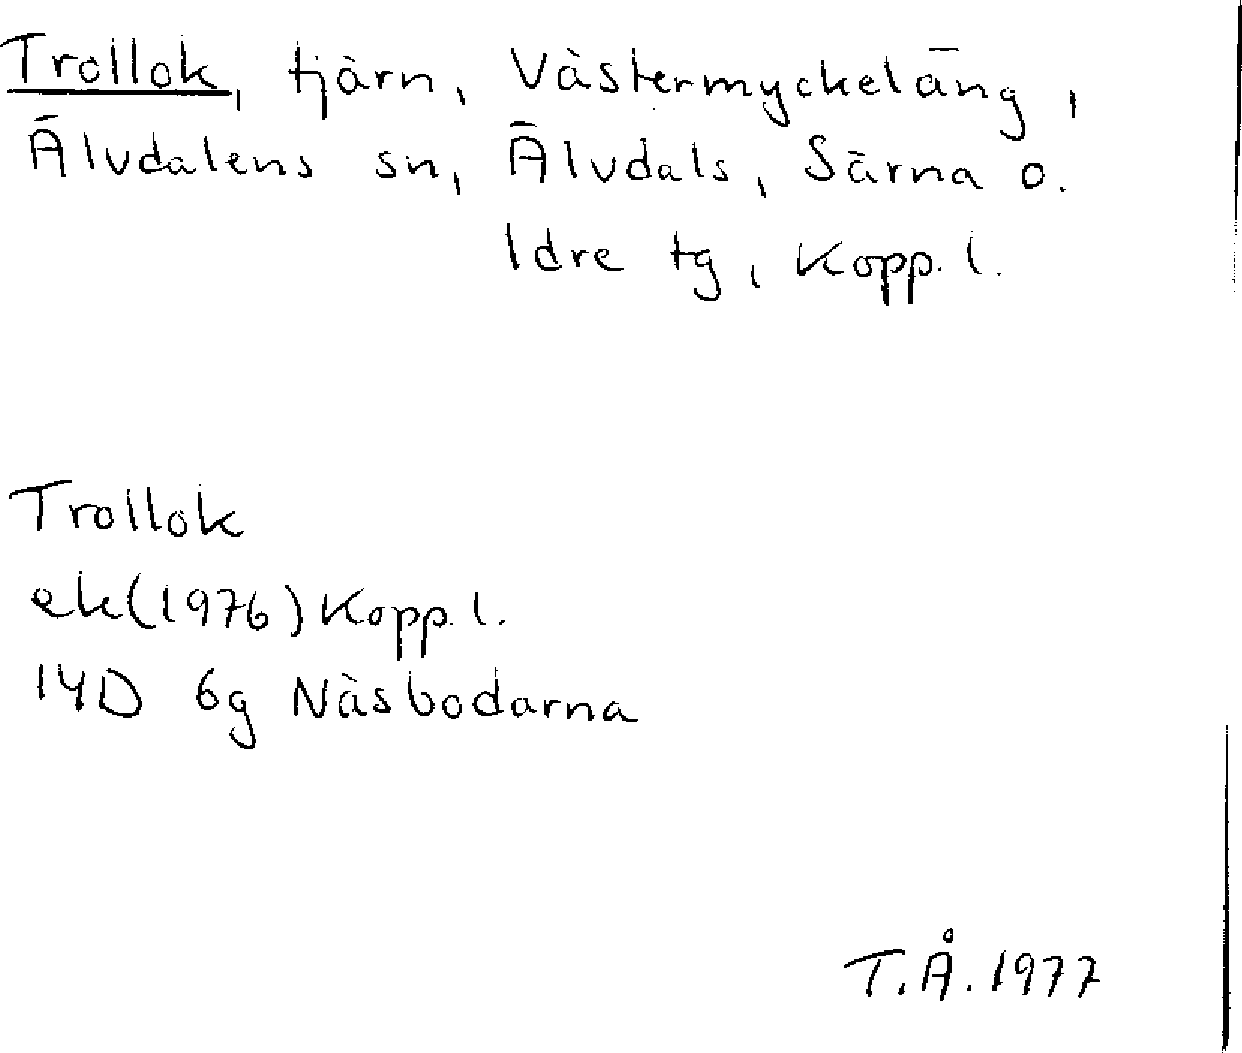 Trollok, tjärn, Västermyckeläng,
Älvdalens sn, Älvdals, Särna o.
Idre tg, Kopp. l.
Trollok
ek(1976) Kopp. l.
14D 6g Näsbodarna
T.Å. 1977